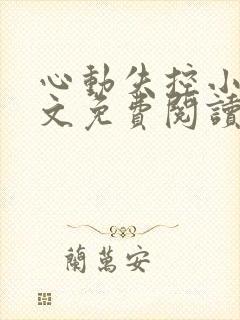 心動失控小
文免費閱讀
蘭萬安